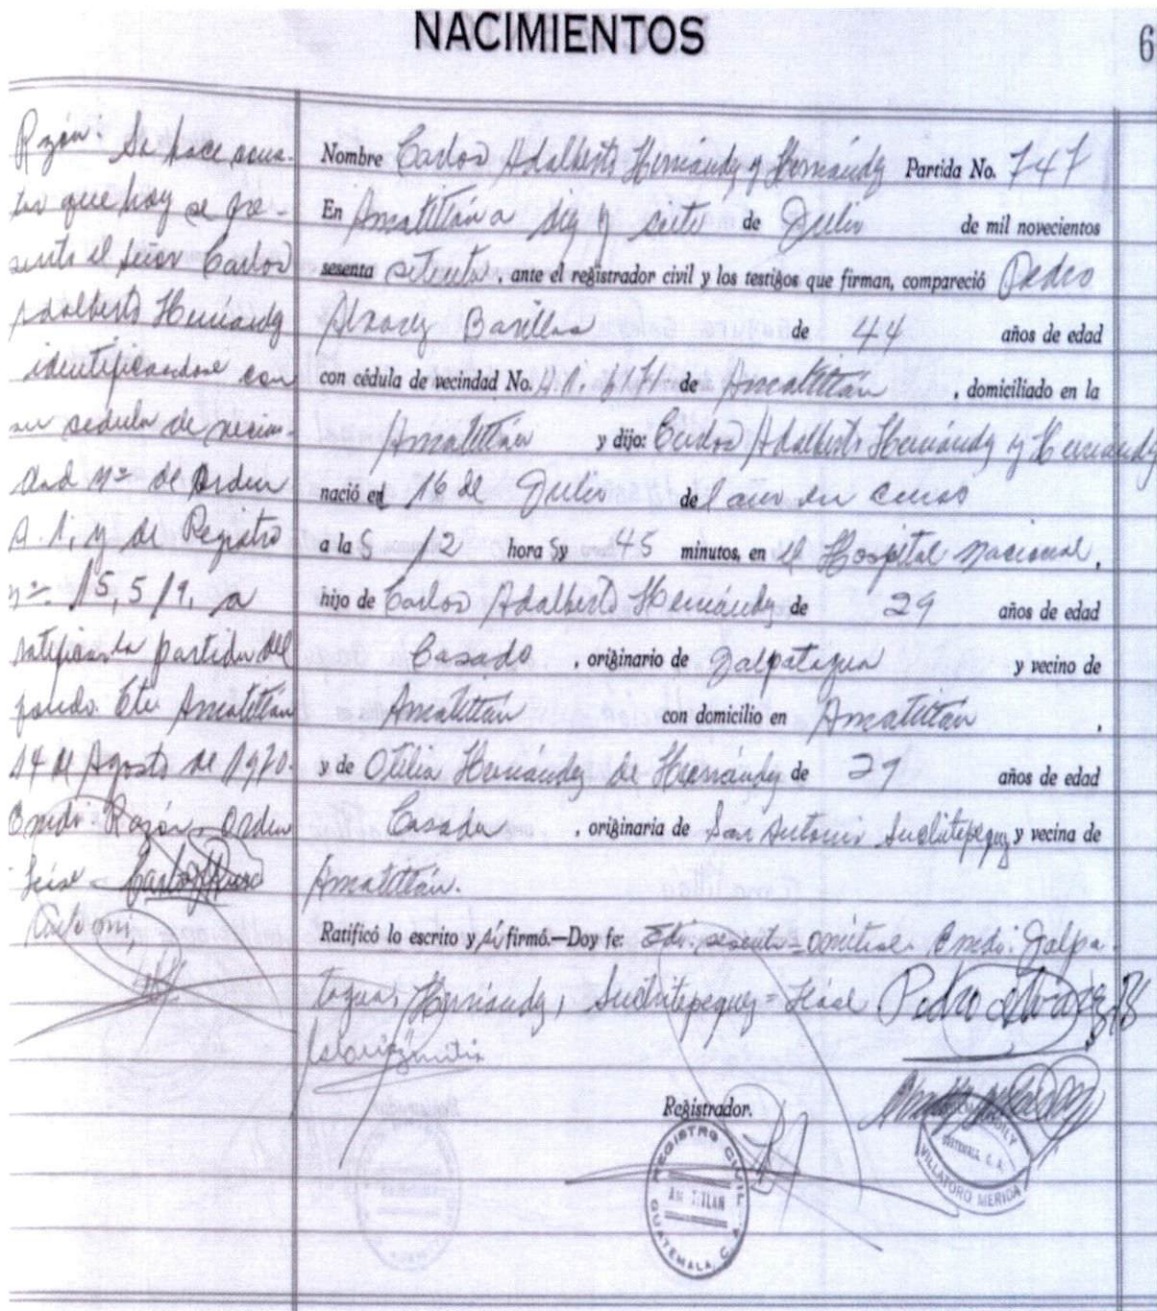 NACIMIENTOS
6
Razón: Se hace cons-
tar que hoy se pre-
sentó el señor Carlos
Adalberto Hernández
identificandose con
su sedula de vecin-
dad Nº de Orden
A.1, y de Registro
Nº 15,519, a
ratificar la partida del
fondo. Ete Amatitlán
14 de Agosto de 1970.
Enmdo: Razón, Orden
Léase
Nombre Carlos Adalberto Hernández y Hernández Partida No. 747
En Amatitlán a diez y siete de Julio de mil novecientos
sesenta setenta, ante el registrador civil y los testigos que firman, compareció Pedro
Alvarez Barillas de 44 años de edad
con cédula de vecindad No. A.1. de Amatitlán, domiciliado en la
Amatitlán y dijo: Carlos Adalberto Hernández y Hernández
nació el 16 de Julio del año en curso
a las 12 horas y 45 minutos, en el Hospital Nacional,
hijo de Carlos Adalberto Hernández de 29 años de edad
Casado, originario de Jalpatagua y vecino de
Amatitlán con domicilio en Amatitlán,
y de Otilia Hernández de Hernández de 29 años de edad
Casada, originaria de San Antonio Suchitepequez y vecina de
Amatitlán.
Ratificó lo escrito y sí firmó.—Doy fe: sesenta = omitase. Enmdo: Jalpa-
tagua, Hernández, Suchitepequez = Léase Pedro Alvarez B
Registrador.
REGISTRO CIVIL
AMATITLAN
GUATEMALA, C. A.
GUATEMALA, C. A.
VILLATORO MERIDA